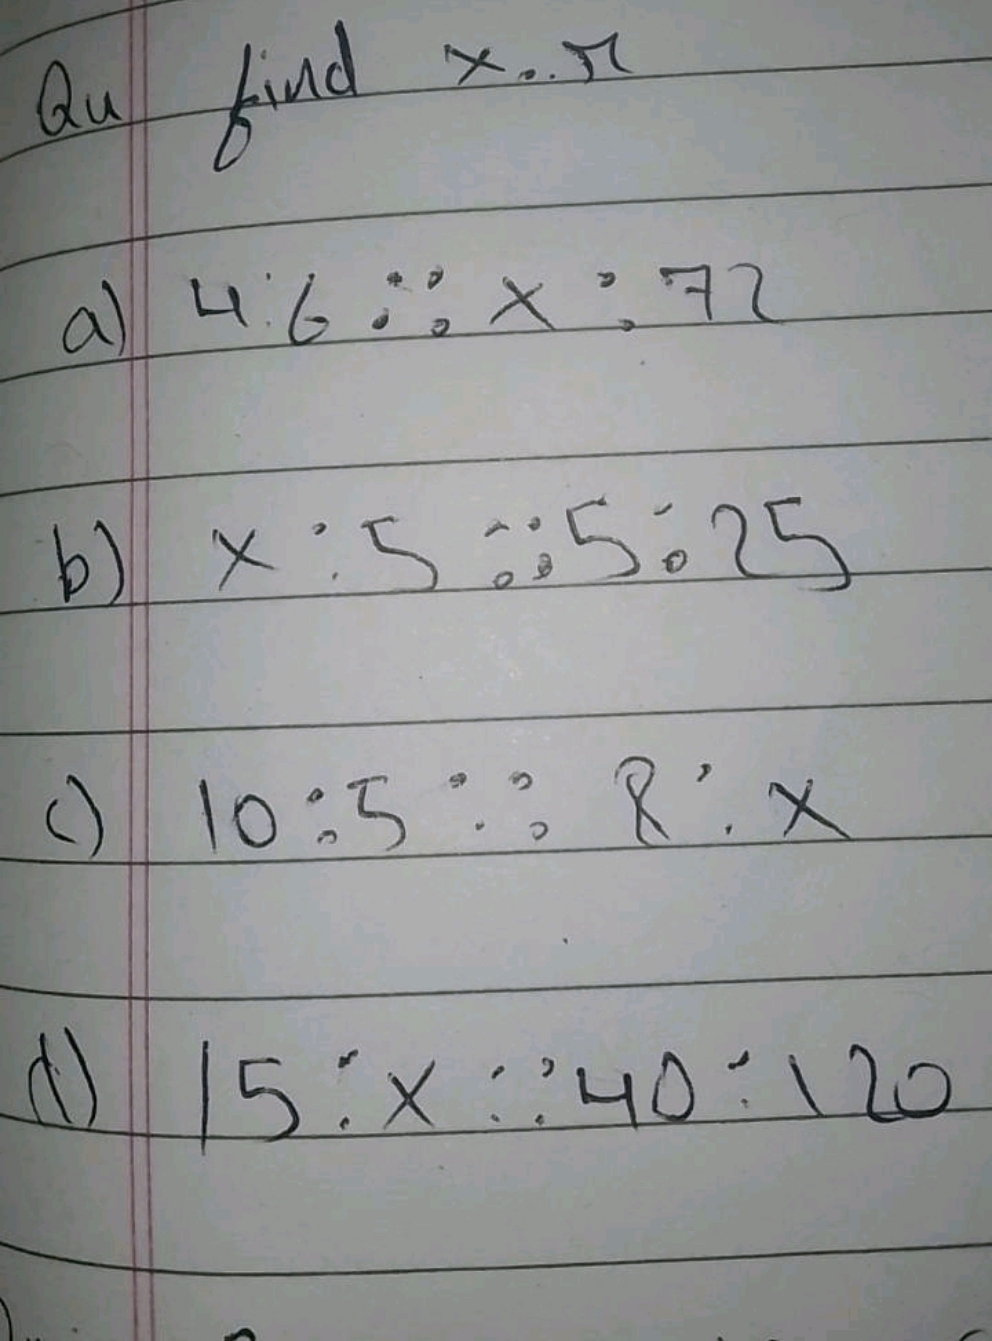 Qu find x..
a) 4:6 :: x : 72
b) x : 5 :: 5 : 25
c) 10 : 5 :: 8 : x
d) 15 : x :: 40 : 120